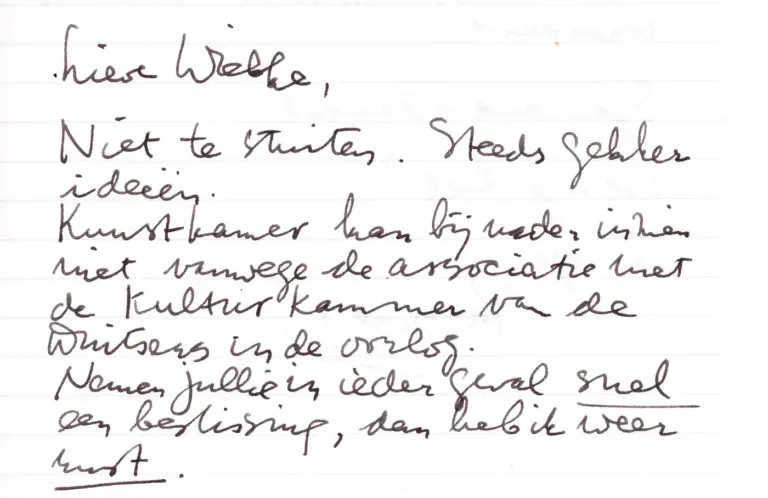 Lieve Wiebke,
Niet te stuiten. Steeds gekker
ideeën.
Kunstkamer kan bij nader inzien
niet vanwege de associatie met
de Kulturkammer van de
Duitsers in de oorlog.
Nemen jullie in ieder geval snel
een beslissing, dan heb ik weer
rust.